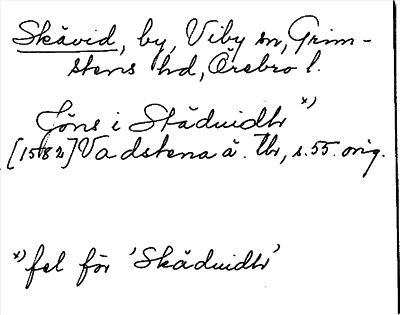 Skåvid, by, Viby sn, Grim-
stens hd, Örebro l.
Jöns i Ståduidhr x)
[1582] Vadstena ä. Tb, s. 55. orig.
x) fel för 'Skåduidhr'